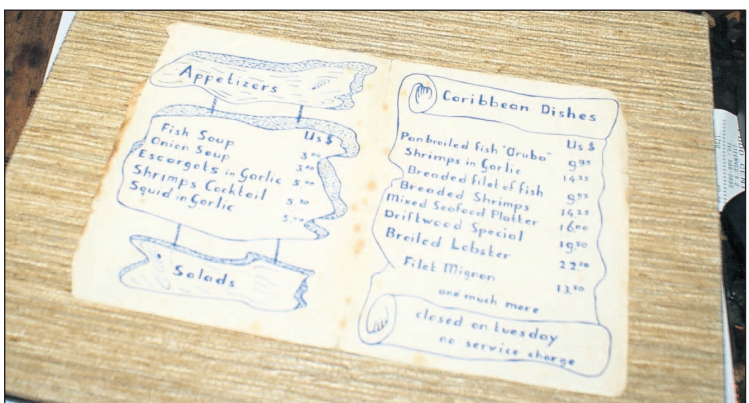 Appetizers
US $
Fish Soup
Onion Soup
Escargots in Garlic
Shrimps Cocktail
Squid in Garlic
Salads
Caribbean Dishes
US $
Panbroiled fish "Aruba" 9.95
Shrimps in Garlic 14.25
Breaded filet of fish 9.95
Breaded Shrimps 14.25
Mixed Seafood Platter 16.00
Driftwood Special 19.50
Broiled Lobster 22.00
Filet Mignon 13.50
and much more
closed on tuesday
no service charge